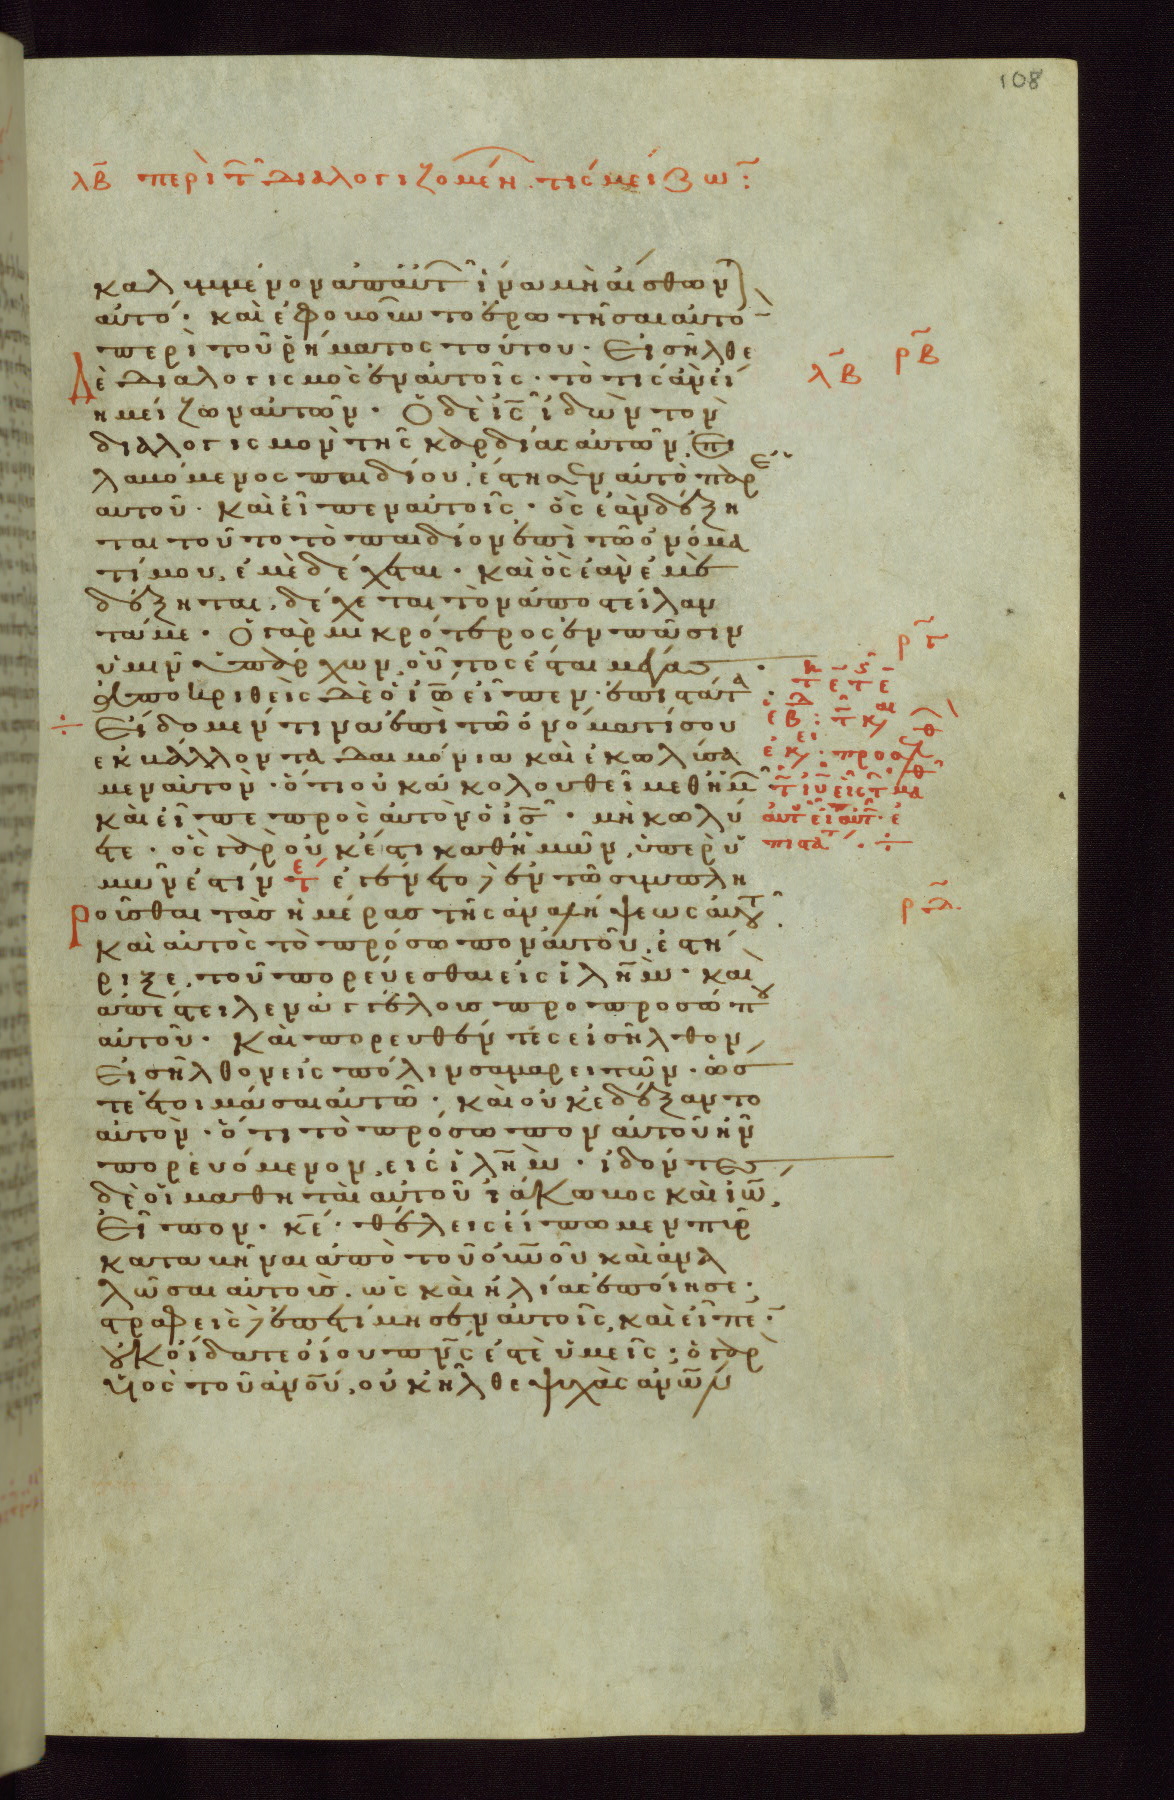 108
λβ περὶ τ διαλογιζομέν τίς μείζω:
καλυμμένον ἀπ' αὐτ ἵνα μὴ αἴσθων
αὐτό· καὶ ἐφοβοῦντο ἐρωτῆσαι αὐτὸ
περὶ τοῦ ῥήματος τούτου· Εἰσῆλθε
δὲ διαλογισμὸς ἐν αὐτοῖς· τὸ τίς ἂν εἴ
η μείζων αὐτῶν· Ὁ δὲ ις ἰδὼν τὸν
διαλογισμὸν τῆς καρδίας αὐτῶν, ἐπι
λαβόμενος παιδίου, ἔστησεν αὐτὸ παρ ἑ
αυτοῦ· καὶ εἶπεν αὐτοῖς· ὃς ἐὰν δέξη
ται τοῦτο τὸ παιδίον ἐπὶ τῶ ὀνόμα
τί μου, ἐμὲ δέχεται· καὶ ὃς ἐὰν ἐμὲ
δέξηται, δέχεται τὸν ἀποστείλαν
τά με· Ὁ γὰρ μικρότερος ἐν πᾶσιν
ὑμῖν ὑπάρχων, οὗτος ἔσται μέγας·
ἀποκριθεὶς δὲ ὁ ἰω εἶπεν· ἐπιστάτα·
Εἴδομέν τινα ἐπὶ τῶ ὀνόματί σου
ἐκβάλλοντα δαιμόνια καὶ ἐκωλύσα
μεν αὐτὸν· ὅτι οὐκ ἀκολουθεῖ μεθ' ἡμ
καὶ εἶπε πρὸς αὐτὸν ὁ ις· μὴ κωλύ
ετε· ὃς γὰρ οὐκ ἔστι καθ' ἡμῶν, ὑπὲρ ὑ
μῶν ἐστίν τε ἐγένετο δὲ ἐν τῶ συμπλη
ροῦσθαι τὰς ἡμέρας τῆς ἀναλήψεως αὐτου
καὶ αὐτὸς τὸ πρόσωπον αὐτοῦ, ἐστή
ριξε, τοῦ πορεύεσθαι εἰς ἱλημ· καὶ
ἀπέστειλεν ἀγγέλους πρὸ προσώπου
αὐτοῦ· Καὶ πορευθέντες εἰσῆλθον,
εἰσῆλθον εἰς πόλιν σαμαρειτῶν· ὡσ
τε ἑτοιμάσαι αὐτῶ· καὶ οὐκ ἐδέξαντο
αὐτὸν· ὅτι τὸ πρόσωπον αὐτοῦ ἦν
πορευόμενον, εἰς ἱλημ· ἰδόντες,
δὲ οἱ μαθηταὶ αὐτοῦ ἰάκωβος καὶ ἰω,
εἶπον· κε· θέλεις εἴπωμεν πῦρ
καταβῆναι ἀπὸ τοῦ οὐνοῦ καὶ ἀνα
λῶσαι αὐτούς, ὡς καὶ ἠλίας ἐποίησε;
στραφεὶς δὲ ἐπετίμησεν αὐτοῖς, καὶ εἶπε·
οὐκ οἴδατε οἵου πνς ἐστὲ ὑμεῖς; ὁ γὰρ
υἱὸς τοῦ ἀνου, οὐκ ἦλθε ψυχὰς ἀνων
λβ
ρβ
ργ
ρδ